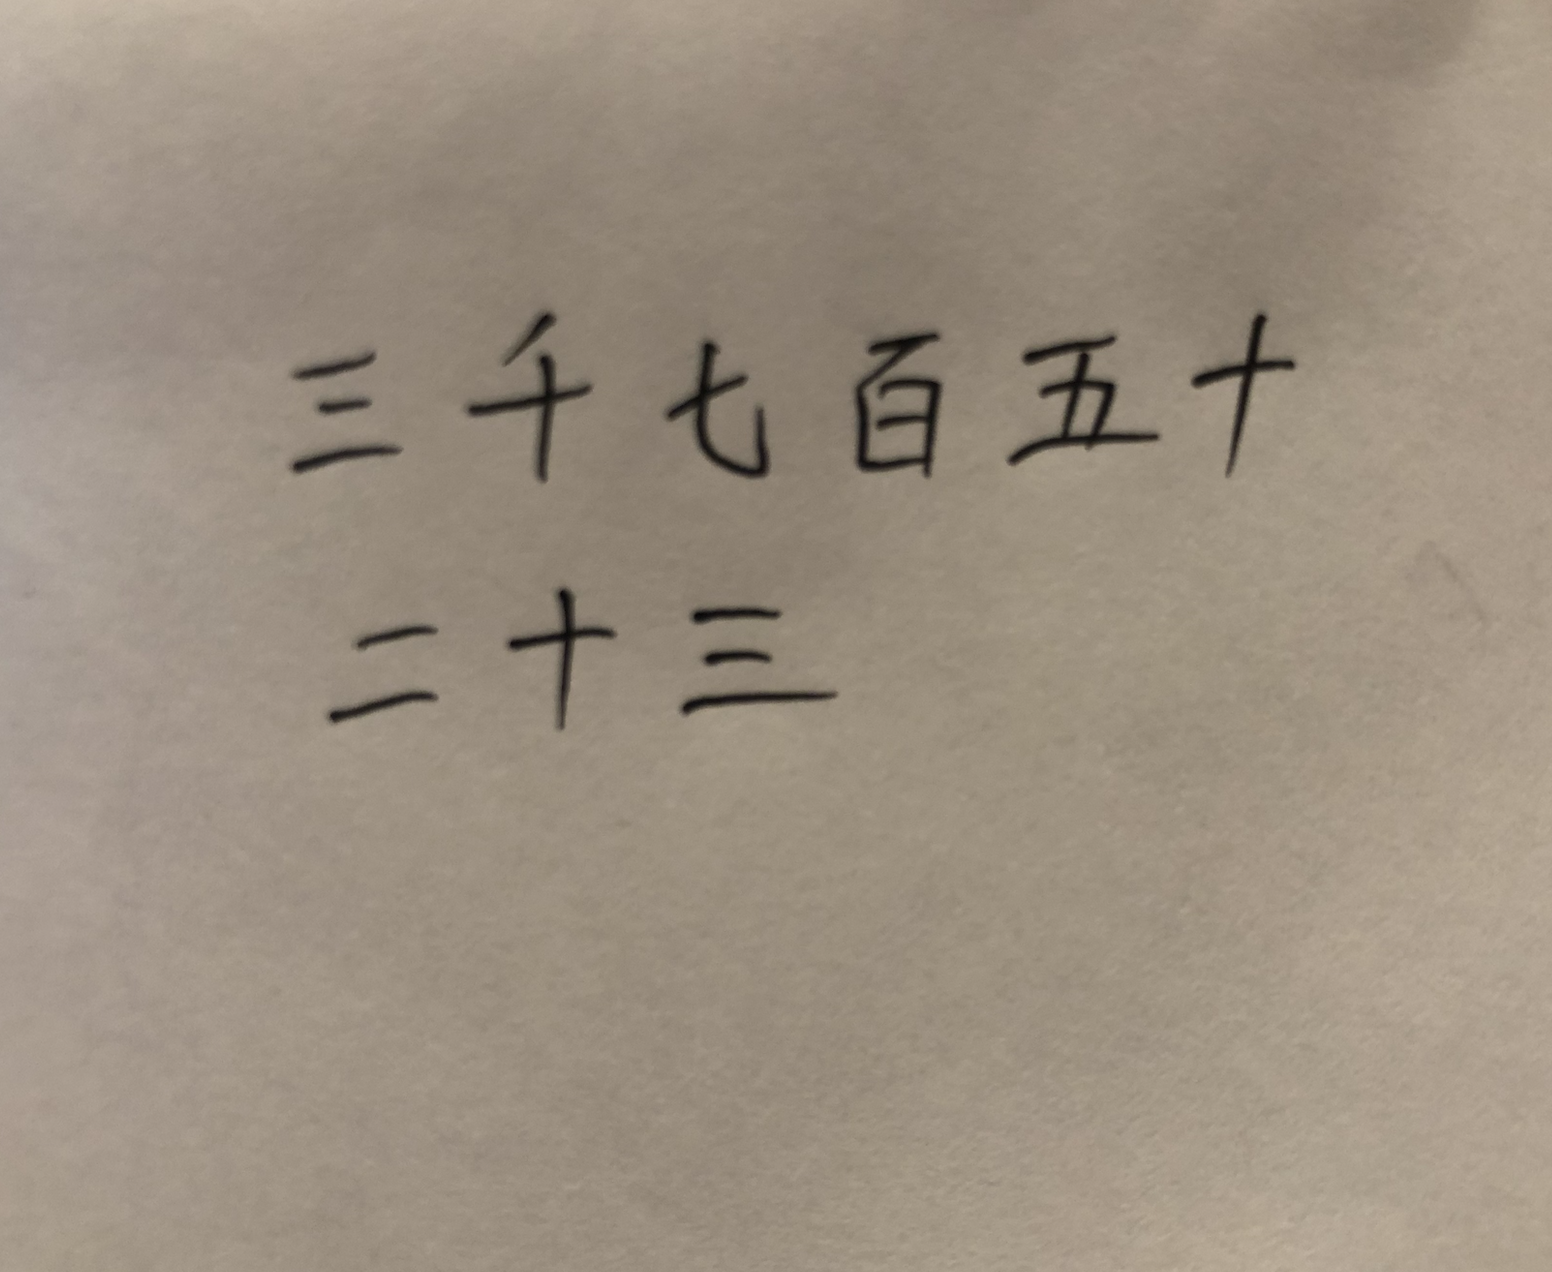 三千七百五十
二十三